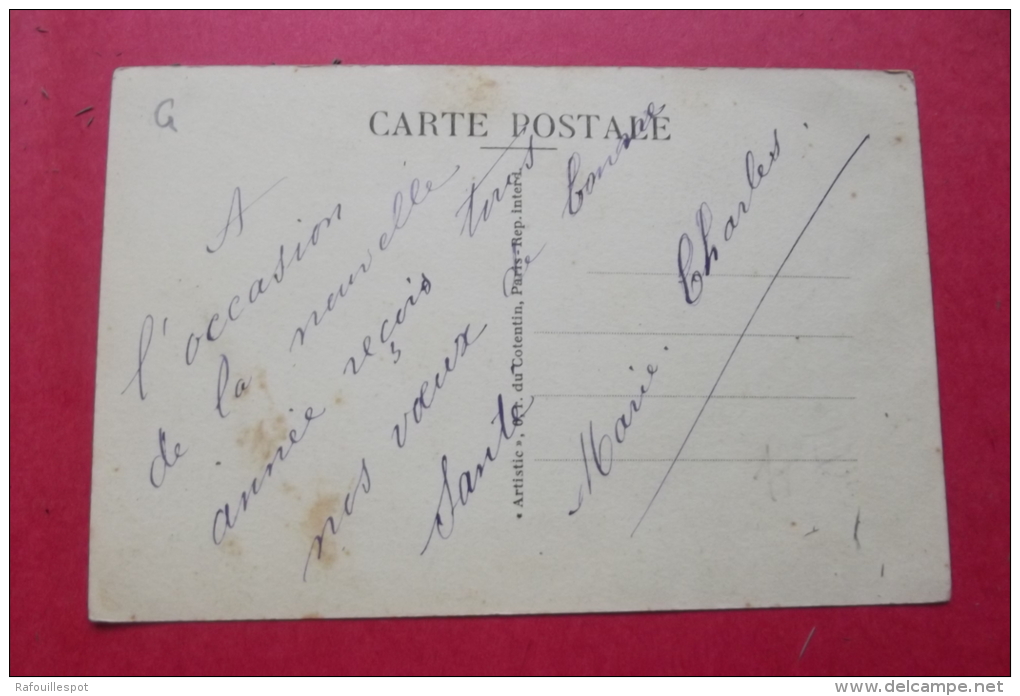 G
CARTE POSTALE
A
l'occasion
de la nouvelle
année reçois tous
nos vœux de bonne
Santé
Marie Charles
« Artistic », du Cotentin, Paris - Rep. Interd.
Rafouillespot
www.delcampe.net